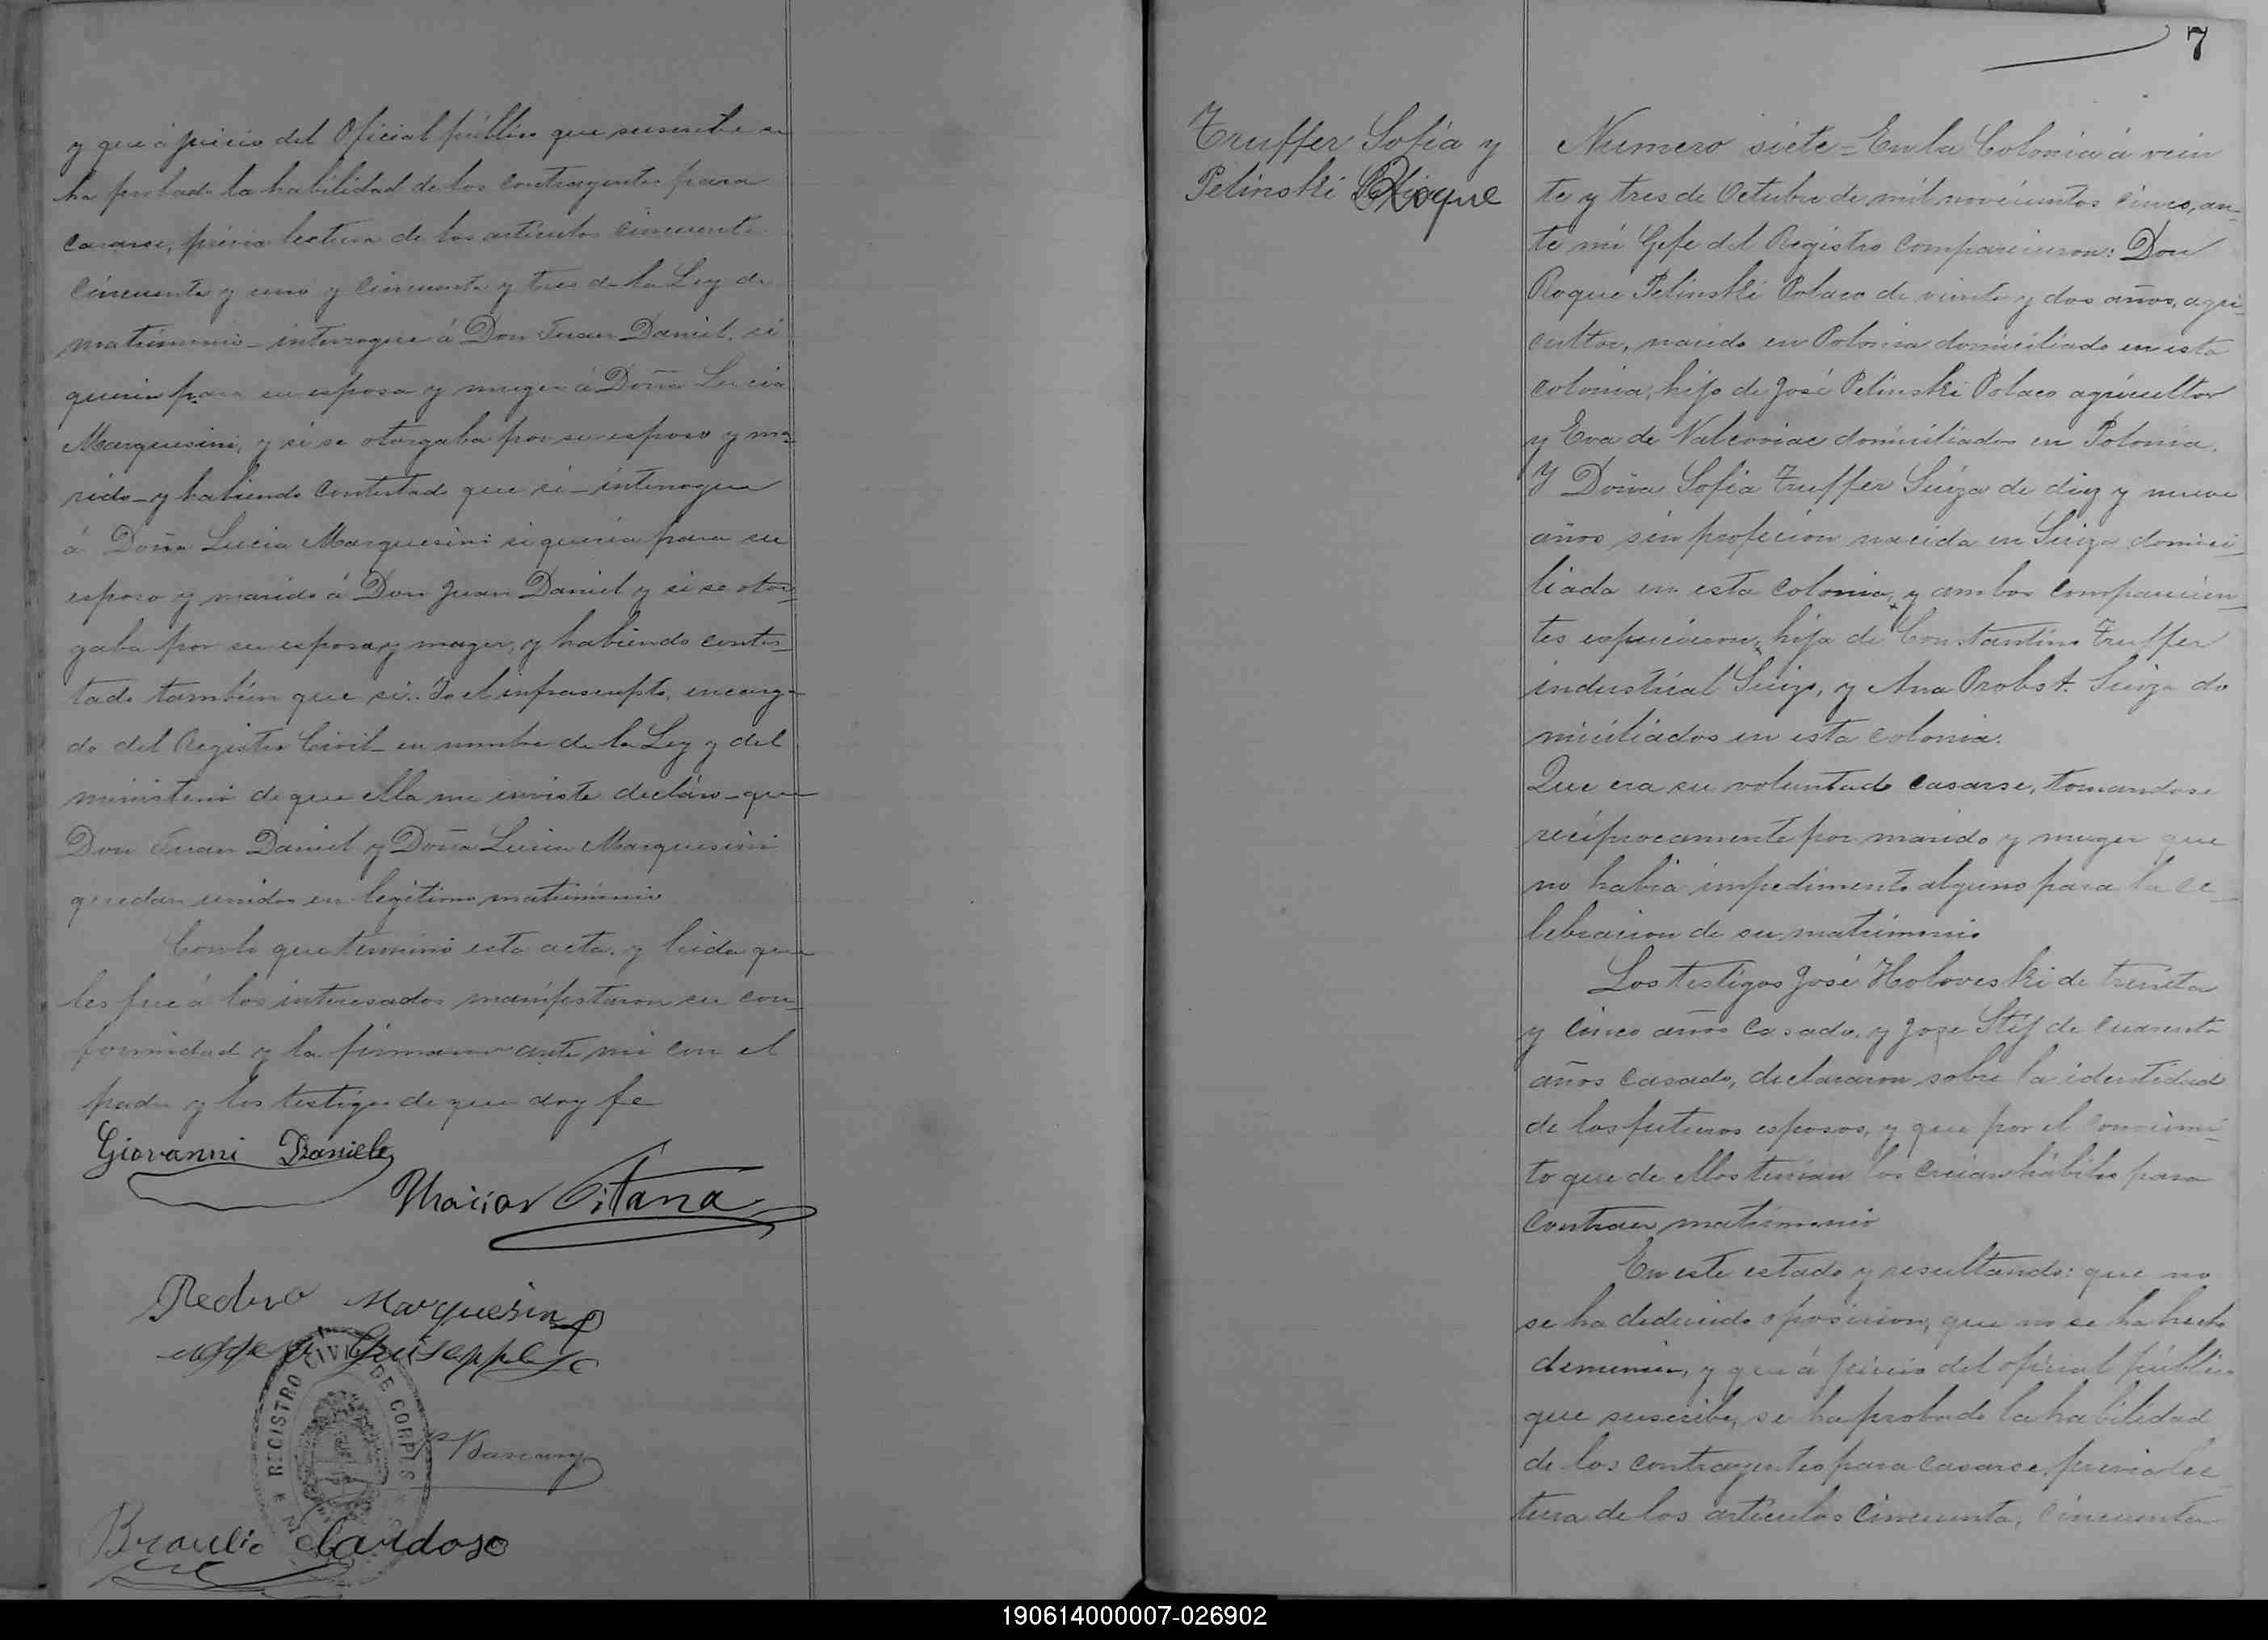 y que á juicio del Oficial público que suscribe se
ha probado la habilidad de los contrayentes para
casarse, prévia lectura de los artículos cincuenta
cincuenta y uno y cincuenta y tres de la Ley de
matrimonio - interrogue á Don Juan Daniel, si
queria para su esposa y muger á Doña Lucia
Marquesini, y si se otorgaba por su esposo y ma-
rido - y habiendo contestado que si - interrogue
á Doña Lucia Marquesini si queria para su
esposo y marido á Don Juan Daniel y si se otor-
gaba por su esposa y muger, y habiendo contes-
tado tambien que si. Yo el infrascripto, encarga-
do del Registro Civil - en nombre de la Ley y del
ministerio de que ella me inviste declaro - que
Don Juan Daniel y Doña Lucia Marquesini
quedan unidos en legitimo matrimonio
Con lo que terminó esta acta, y leida que
les fue á los interesados manifestaron su con-
formidad y la firmaron ante mi con el
padre y los testigos de que doy fe
Giovanni Daniele
Pedro Marquesini
Giuseppe
REGISTRO CIVIL DE CORPUS
Braulio Cardoso
7
Truffer Sofia y
Pelinski Roque
Numero siete = En la Colonia á vein
te y tres de Octubre de mil novecientos cinco, an-
te mi Gefe del Registro comparecieron: Don
Roque Pelinski Polaco de veinte y dos años, agri-
cultor, nacido en Polonia domiciliado en esta
colonia, hijo de José Pelinski Polaco agricultor
y Eva de Valcoviac domiciliados en Polonia.
Y Doña Sofia Truffer Suiza de diez y nueve
años sin profecion nacida en Suiza domici-
liada en esta colonia, y ambos comparecien-
tes expucieron, hija de Constantino Truffer
industrial Suizo, y Ana Probst. Suiza do
miciliados en esta colonia.
Que era su voluntad casarse, tomandose
reciprocamente por marido y muger que
no habia impedimento alguno para la ce-
lebracion de su matrimonio
Los testigos José Holoveski de treinta
y cinco años casado, y Jose Stef de cuarenta
años casado, declararon sobre la identidad
de los futuros esposos, y que por el conocimi-
to que de ellos tenian los creian hábiles para
contraer matrimonio
En este estado y resultando: que no
se ha deducido oposicion, que no se ha hecho
denuncia, y que á juicio del oficial público
que suscribe, se ha probado la habilidad
de los contrayentes para casarse, previa lec-
tura de los articulos cincuenta, cincuenta
190614000007-026902